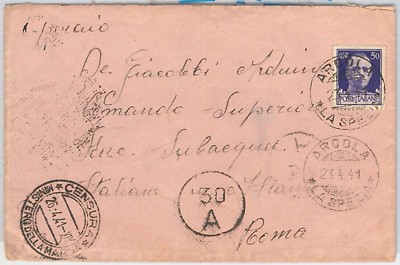 De Giacobbi Arduino
Comando Superio
Subacquei
Italiane
Roma
50
POSTE ITALIANE
ARCOLA
LA SPEZIA
ARCOLA
23.4.41
LA SPEZIA
30
A
CENSURA
26.4.41
MINISTERO DELLA MARINA